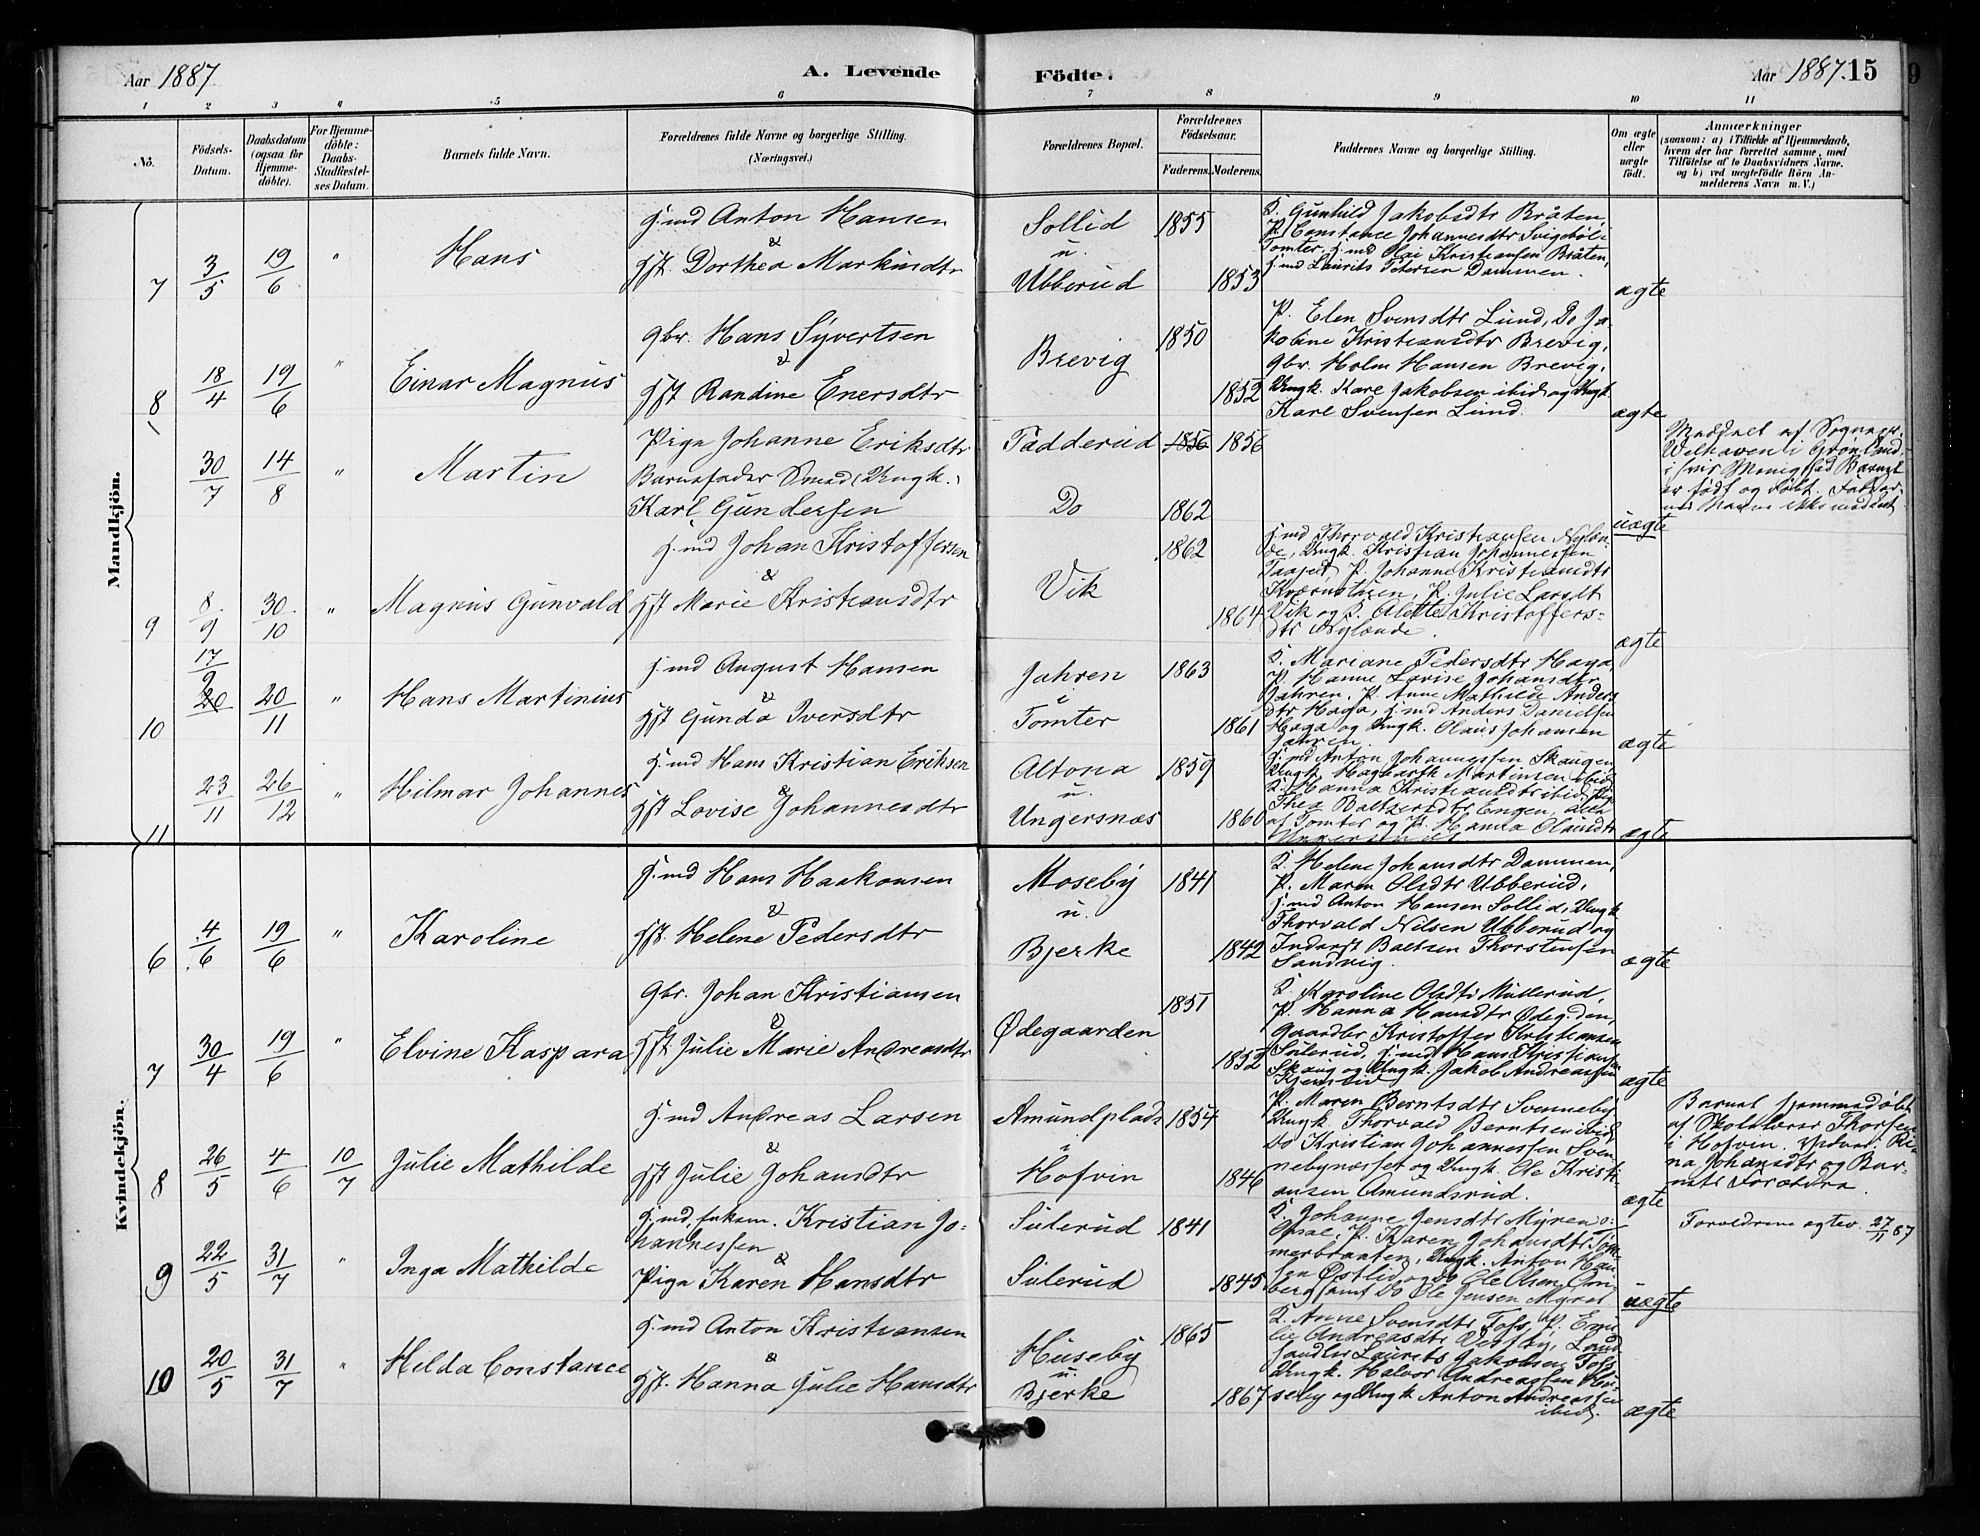 Aar 1887. A. Levende Födte. Aar 1887. 15
1 2 3 4 5 6 7 8 9 10 11
No.
Födsels-
Datum.
Daabsdatum
(ogsaa for
Hjemme-
döbte).
For Hjemme-
döbte:
Daabs-
Stadfæstel-
ses Datum.
Barnets fulde Navn.
Forældrenes fulde Navne og borgerlige Stilling.
(Næringsvei.)
Forældrenes Bopæl.
Forældrenes
Födselsaar.
Faderens. Moderens.
Faddernes Navne og borgerlige Stilling.
Om ægte
eller
uægte
födt.
Anmærkninger
(saasom: a) i Tilfælde af Hjemmedaab,
hvem der har forrettet samme, med
Tilföielse af to Daabsvidners Navne,
og b) ved uægtefödte Börn An-
melderens Navn m. V.)
Mandkjön.
7 3/5 19/6 " Hans
G.md Anton Hansen
&
Gft. Dorthea Markusdtr
Sollid
u.
Ubberud
1855 1853
K. Gunhild Jakobsdtr Bråten,
P. Constance Johannesdtr
Tomter, G.md Olai Kristiansen Bråten,
G.md Laurits Petersen Dammen.
ægte
8 18/4 19/6 " Einar Magnus
Gbr. Hans Syvertsen
&
Gft Randine Enersdtr
Brevig
1850 1852
P. Elen Svensdtr Lund, Do Ja-
kobine Kristiansdtr Brevig,
Gbr. Holm Hansen Brevig,
Ungk. Karl Jakobsen ibid og Ungk
Karl Svensen Lund.
ægte
30/7 14/8 " Martin
Piga Johanne Eriksdtr
Barnefader Smed, Ungk.
Karl Gundersen
Tadderud
Do
1856 1856
1862
uægte
Meddelt af Sognepr.
Welhaven i Grønland
i hvis Menighed Barnet
er født og døbt. Fadder-
nes Navne ikke meddelt
9 8/9 30/10 " Magnus Gunvald
G.md Johan Kristoffersen
&
Gft Marie Kristiansdtr
Vik
1862 1864
G.md Thorvald Kristiansen Nylæn-
de, Ungk. Kristian Johannessen
P. Johanne Kristiansdtr
P. Julie Larsdt
Vik og K. Alette Kristoffers-
dtr Nylænde.
ægte
10 17/9 20 20/11 " Hans Martinius
G.md August Hansen
&
Gft Gunda Iversdtr
Jahren
i
Tomter
1863 1861
K. Mariane Pedersdtr Haga,
P. Hanne Lovise Johansdtr
Jahren, P. Anne Mathilde Anders
dtr Haga, G.md Anders Danielsen
Haga og Ungk. Olaus Johansen
Jahren.
ægte
11 23/11 26/12 " Hilmar Johannes
G.md Hans Kristian Eriksen
&
Gft Lovise Johannesdtr
Altona
u.
Ungersnæs
1859 1860
G.md Anton Johannessen Skaugen,
Ungk. Hagbarth Martinsen ibid,
K. Hanna Kristiansdtr ibid,
Thea Baltzersdtr Engen, alle
af Tomter og P. Hanna Olausdtr
ægte
Kvindekjön.
6 4/6 19/6 " Karoline
G.md Hans Haakonsen
&
Gft. Helene Pedersdtr
Moseby
u.
Bjerke
1841 1842
K. Helene Johansdtr Dammen,
P. Maren Olsdtr Ubberud,
G.md Anton Hansen Sollid, Ungk
Thorvald Nilsen Ubberud og
Inderst Baltsen Thorstensen
Sandvig.
ægte
7 30/4 19/6 " Elvine Kaspara
Gbr. Johan Kristiansen
&
Gft. Julie Marie Andreasdtr
Ødegaarden
1851 1852
K. Karoline Olsdtr Mullerud,
P. Hanna Hansdtr Ødeg.den,
Gaardbr Kristoffer Kristiansen
Sulerud, G.md Hans Kristiansen
Skaug og Ungk. Jakob Andreassen
ægte
8 26/5 4/6 10/7 Julie Mathilde
G.md Andreas Larsen
&
Gft Julie Johansdtr
Amundplads
i
Hofvin
1854 1846
P. Maren Berntsdtr Svenneby,
Ungk. Thorvald Berntsen ibid,
Do Kristian Johannessen Sven-
nebynæsset og Ungk. Ole Kristi-
ansen Amundsrud.
ægte
Barnet hjemmedøbt
af Skolelærer Thorsen
i Hofvin. Vidner: Ri-
na Johansdtr og Bar-
nets Forældre.
9 22/5 31/7 " Inga Mathilde
G.md, Enkem. Kristian Jo-
hannessen
&
Piga Karen Hansdtr
Sulerud
Sulerud
1841 1845
K. Johanne Jensdtr Myren o:
Opsal, P. Karen Johansdtr Tøm-
merbraaten, Ungk. Anton Han-
sen Østlid og Do Ole Olsen
berg samt Do Ole Jensen Myren
uægte
Forældrene ægtev. 27/11 87
10 20/5 31/7 " Hilda Constance
G.md Anton Kristiansen
&
Gft. Hanna Julie Hansdtr
Huseby
u.
Bjerke
1865 1867
K. Anne Svensdtr Foss, P. Emi-
lie Andreasdtr Vestby, Land-
handler Laurits Jakobsen Foss,
Ungk. Halvor Andreassen Hu-
seby og Ungk Anton Andreassen
ibid.
ægte